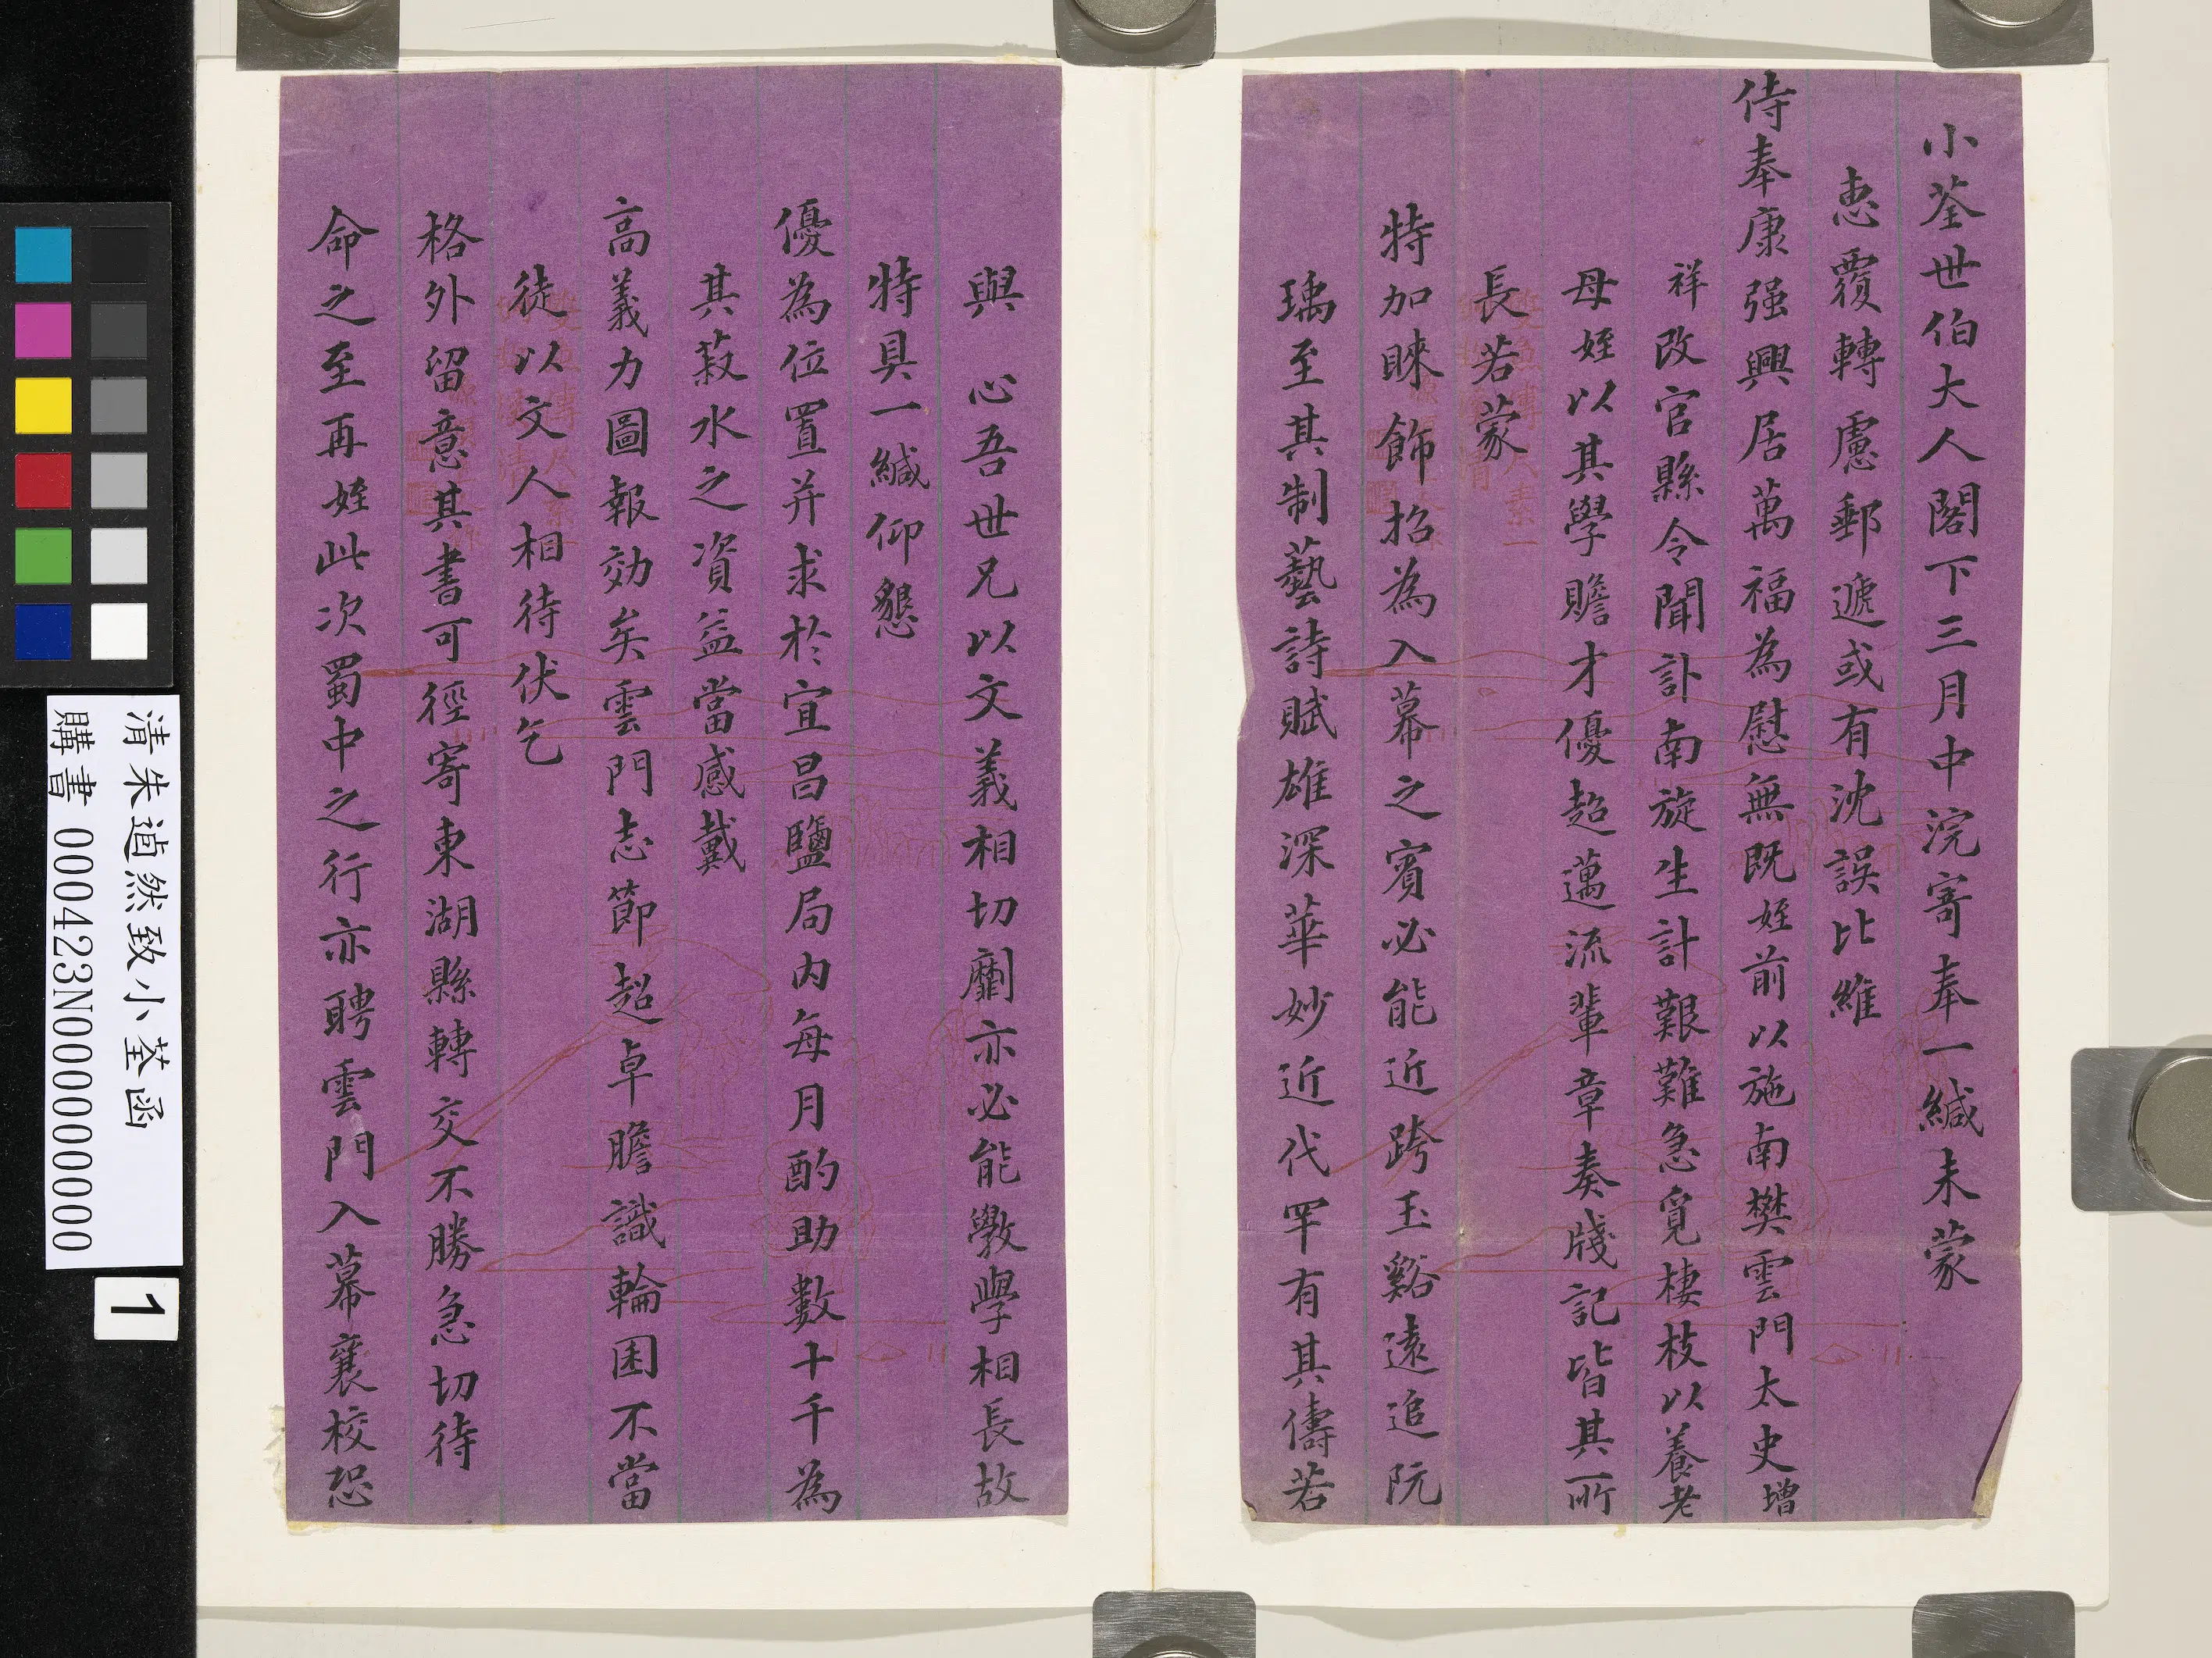 小荃世伯大人閣下三月中浣寄奉一緘未蒙
惠覆轉慮郵遞或有沈誤比維
侍奉康强興居萬福為慰無既姪前以施南樊雲門太史增
祥改官縣令聞訃南旋生計艱難急覓棲枝以養老
母姪以其學贍才優超邁流輩章奏牋記皆其所
長若蒙
特加睞飾招為入幕之賓必能近跨玉谿遠追阮
瑀至其制藝詩賦雄深華妙近代罕有其儔若
與 心吾世兄以文義相切劘亦必能斆學相長故
特具一緘仰懇
優為位置并求於宜昌鹽局內每月酌助數十千為
其菽水之資益當感戴
高義力圖報効矣雲門志節超卓膽識輪囷不當
徒以文人相待伏乞
格外留意其書可徑寄東湖縣轉交不勝急切待
命之至再姪此次蜀中之行亦聘雲門入幕襄校恐
清朱逌然致小荃函
購書 000423N000000000
1